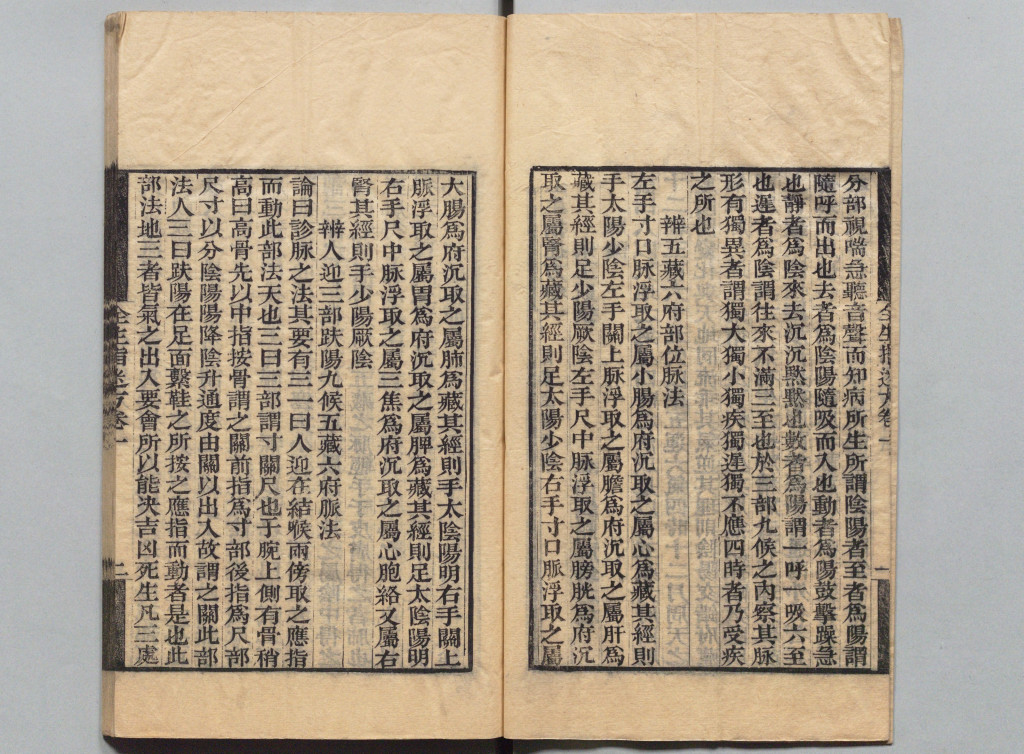 全生指迷方卷一
一
分部視喘息聽音聲而知病所生所謂陰陽者至者爲陽謂
隨呼而出也去者爲陰陽隨吸而入也動者爲陽鼓擊躁急
也靜者爲陰來去沉沉默默也數者爲陽謂一呼一吸六至
也遲者爲陰謂往來不滿三至也於三部九候之內察其脈
形有獨異者謂獨大獨小獨疾獨遲獨不應四時者乃受疾
之所也
辨五藏六府部位脈法
左手寸口脈浮取之屬小腸爲府沉取之屬心爲藏其經則
手太陽少陰左手關上脈浮取之屬膽爲府沉取之屬肝爲
藏其經則足少陽厥陰左手尺中脈浮取之屬膀胱爲府沉
取之屬腎爲藏其經則足太陽少陰右手寸口脈浮取之屬
大腸爲府沉取之屬肺爲藏其經則手太陰陽明右手關上
脈浮取之屬胃爲府沉取之屬脾爲藏其經則足太陰陽明
右手尺中脈浮取之屬三焦爲府沉取之屬心胞絡又屬右
腎其經則手少陽厥陰
辨人迎三部趺陽九候五藏六府脈法
論曰診脈之法其要有三一曰人迎在結喉兩傍取之應指
而動此部法天也三曰三部謂寸關尺也于腕上側有骨稍
高曰高骨先以中指按骨謂之關前指爲寸部後指爲尺部
尺寸以分陰陽陽降陰升通度由關以出入故謂之關此部
法人三曰趺陽在足面繫鞋之所按之應指而動者是也此
部法地三者皆氣之出入要會所以能决吉凶死生凡三處
全生指迷方卷一
二